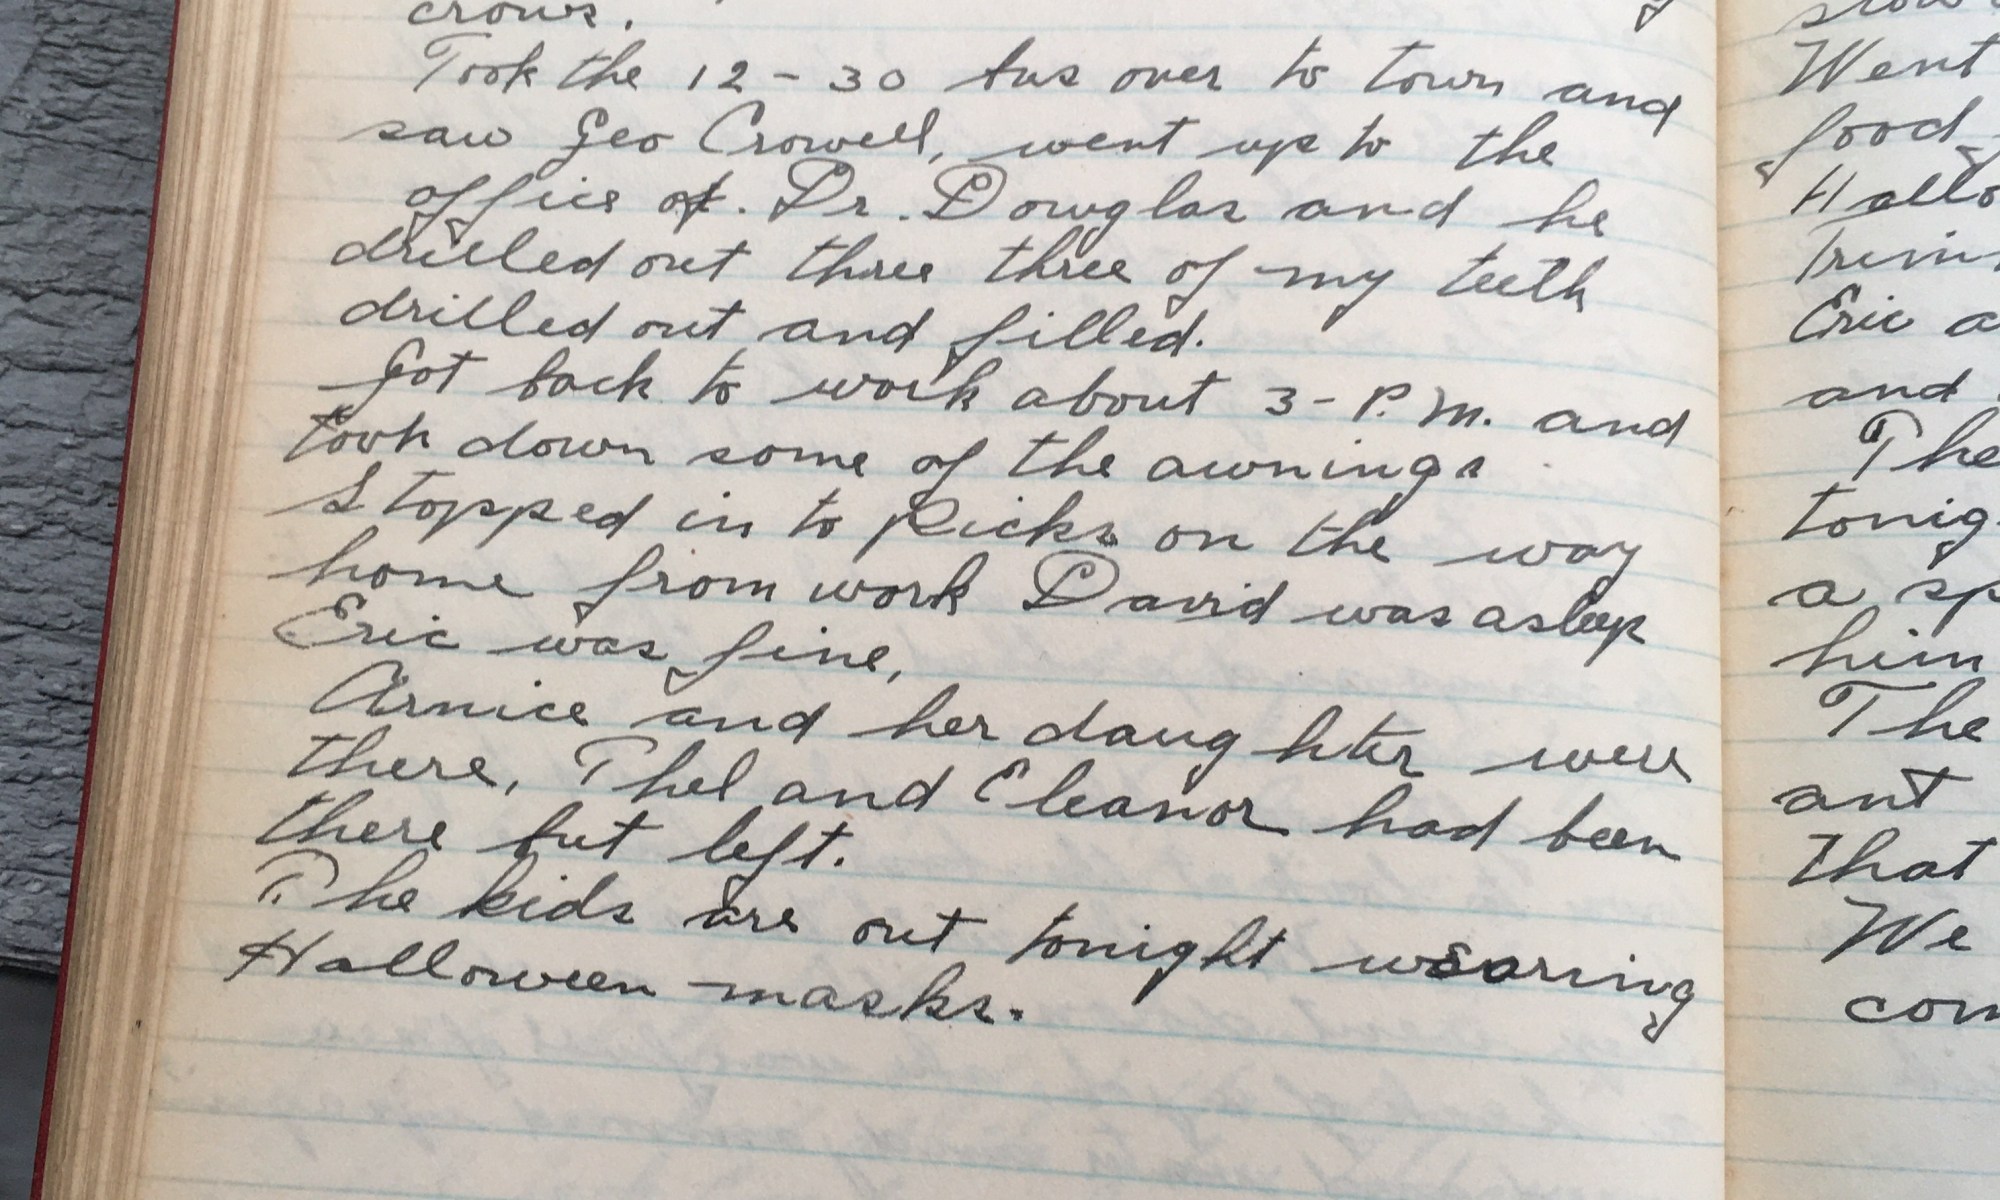 crows.
Took the 12-30 bus over to town and
saw Geo Crowell, went up to the
office of. Dr. Douglas and he
drilled out three three of my teeth
drilled out and filled.
Got back to work about 3- P.M. and
took down some of the awnings
Stopped in to Ricks on the way
home from work David was asleep
Eric was fine,
Arnice and her daughter were
there, Thel and Eleanor had been
there but left.
The kids are out tonight wearing
Halloween masks.
Went
food
Eric a
and
The
tonig
a sp
him
The
ant
that
We
com